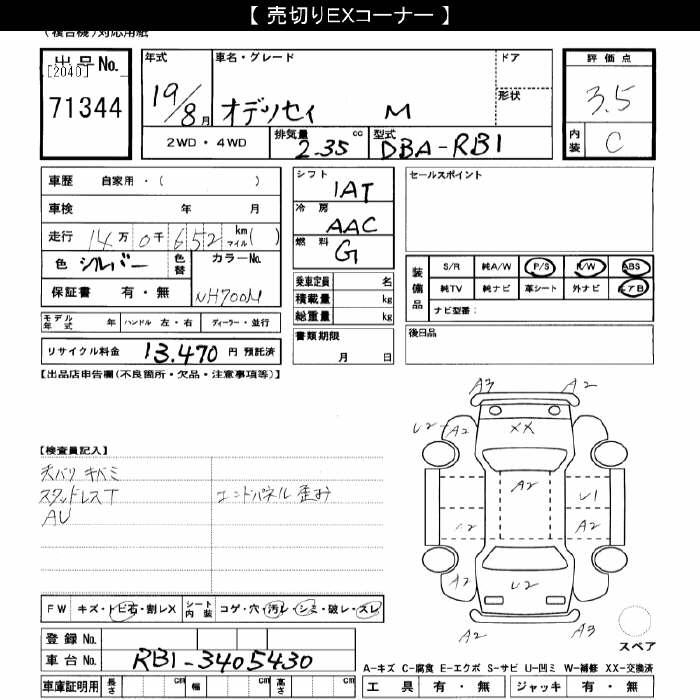 【 売切りEXコーナー 】
(複合機)対応用紙
出品No.
[2040]
71344
年式 19/8月
車名・グレード オデッセイ M
ドア
形状
評価点 3.5
内装 C
2WD・4WD 排気量 2.35 cc 型式 DBA-RB1
車歴 自家用・( )
車検 年 月
走行 14万0千652 km マイル( )
色 シルバー 色替 カラーNo. NH700M
保証書 有・無
モデル年式 年 ハンドル 左・右 ディーラー・並行
リサイクル料金 13.470 円 預託済
シフト IAT
冷房 AAC
燃料 G
乗車定員 名
積載量 kg
総重量 kg
書類期限
月 日
セールスポイント
装備品 S/R 純A/W P/S P/W ABS
純TV 純ナビ 革シート 外ナビ エアB
ナビ型番:
後日品
【出品店申告欄(不良箇所・欠品・注意事項等)】
【検査員記入】
天バリ キバミ
スタッドレスT
エンドパネル歪み
AU
FW キズ・トビ石・割レX シート内装 コゲ・穴・汚レ・シミ・破レ・スレ
登録No.
車台No. RB1-3405430
車庫証明用 長さ cm 幅 cm 高さ cm
A3 A2
U2 A2 XX A2
A2
U1
A2
A2 U2 A2
A2 A3
スペア
A-キズ C-腐食 E-エクボ S-サビ U-凹ミ W-補修 XX-交換済
工具 有・無 ジャッキ 有・無